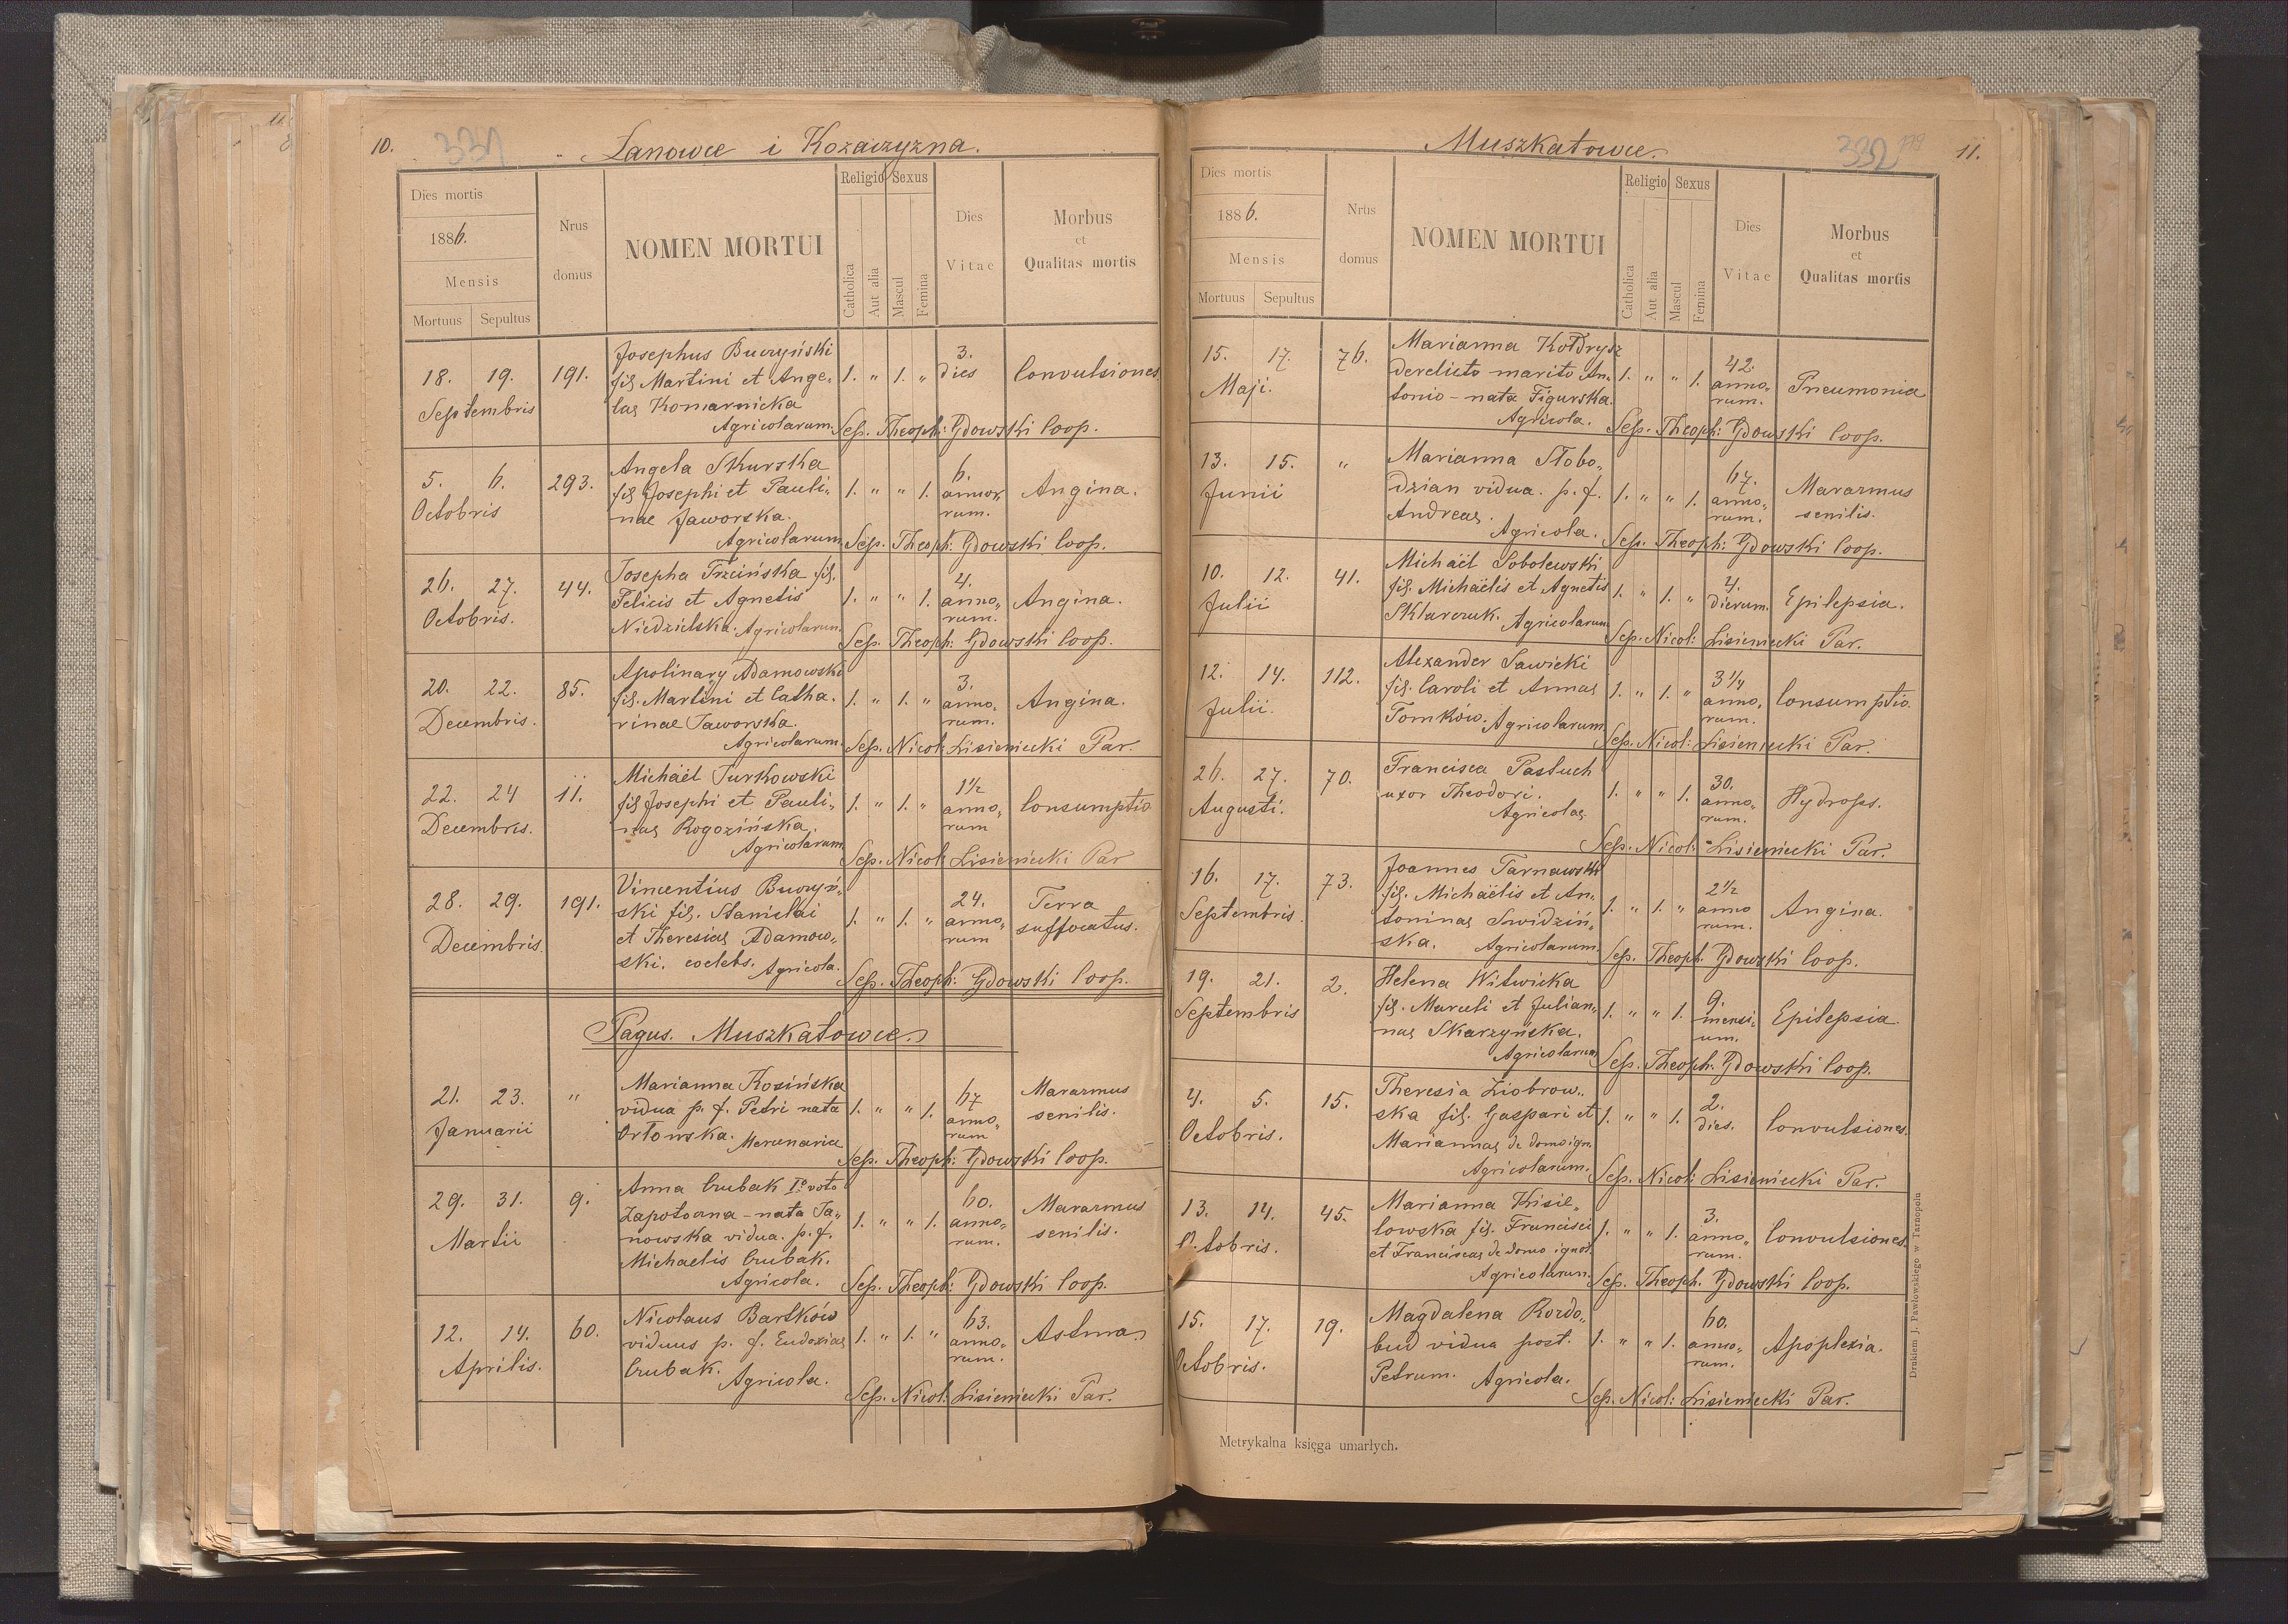 10.
331
Lanowce i Kozaczyzna.
Dies mortis
1886.
Mensis
Mortuus Sepultus
Nrus domus
NOMEN MORTUI
Religio
Catholica
Aut alia
Sexus
Mascul
Femina
Dies Vitae
Morbus
et
Qualitas mortis
18. 19. Septembris 191.
Josephus Buczyński
fil. Martini et Ange-
lae Komarnicka
Agricolarum.
1. " 1. "
3. dies
Convulsiones
Sep. Theoph: Gdowski Coop.
5. 6. Octobris 293.
Angela Skurska
fil. Josephi et Pauli-
nae Jaworska.
Agricolarum
1. " " 1.
6. annorum.
Angina.
Sep. Theoph: Gdowski Coop.
26. 27. Octobris. 44.
Josepha Trzcińska fil.
Felicis et Agnetis
Niedzielska. Agricolarum.
1. " " 1.
4. anno„
rum.
Angina.
Sep. Theoph: Gdowski Coop.
20. 22. Decembris. 85.
Apolinary Adamowski
fil. Martini et Catha-
rinae Jaworska.
Agricolarum.
1. " 1. "
3. anno-
rum.
Angina.
Sep. Nicol: Lisieniecki Par.
22. 24 Decembris. 11.
Michaël Turkowski
fil. Josephi et Pauli-
nae Rogozińska.
Agricolarum
1. " 1. "
1½ anno„
rum
Consumptio
Sep. Nicol: Lisieniecki Par
28. 29. Decembris. 191.
Vincentius Buczyń-
ski fil. Stanislai
et Theresiae Adamow„
ski. coelebs. Agricola.
1. " 1. "
24. anno„
rum
Terra
suffocatus.
Sep. Theoph: Gdowski Coop.
Pagus. Muszkatowce.
21. 23. Januarii "
Marianna Kosińska
vidua p. f. Petri nata
Orłowska. Mercenaria
1. " " 1.
67 anno„
rum
Marazmus
senilis.
Sep. Theoph: Gdowski Coop.
29. 31. Martii 9.
Anna Czubak I° voto
Zapotoczna - nata Ja„
nowska vidua. p. f.
Michaelis Czubak.
Agricola.
1. " " 1.
60. anno„
rum.
Marazmus
senilis.
Sep. Theoph: Gdowski Coop.
12. 14. Aprilis. 60.
Nicolaus Bartków
viduus p. f. Eudoxiae
Czubak. Agricola.
1. " 1. "
63. anno-
rum.
Astma
Sep. Nicol: Lisieniecki Par.
Muszkatowce.
332
179
11.
Dies mortis
1886.
Mensis
Mortuus Sepultus
Nrus domus
NOMEN MORTUI
Religio
Catholica
Aut alia
Sexus
Mascul
Femina
Dies Vitae
Morbus
et
Qualitas mortis
15. 17. Maji. 76.
Marianna Kołdrysz
derelicto marito An-
tonio - nata Figurska.
Agricola.
1. " " 1.
42. anno„
rum.
Pneumonia
Sep. Theoph: Gdowski Coop.
13. 15. Junii "
Marianna Słobo„
dzian vidua. p. f.
Andreae. Agricola.
1. " " 1.
67. anno„
rum.
Marazmus
senilis.
Sep. Theoph: Gdowski Coop.
10. 12. Julii 41.
Michaël Sobolewski
fil. Michaëlis et Agnetis
Sklarczuk. Agricolarum
1. " 1. "
4. dierum.
Epilepsia.
Sep. Nicol: Lisieniecki Par.
12. 14. Julii. 112.
Alexander Sawicki
fil. Caroli et Annae
Tomków. Agricolarum
1. " 1. "
3¼ anno„
rum.
Consumptio.
Sep. Nicol: Lisieniecki Par.
26. 27. Augusti. 70.
Francisca Pastuch
uxor Theodori.
Agricolae
1. " " 1.
30. anno„
rum.
Hydrops.
Sep. Nicol: Lisieniecki Par.
16. 17. Septembris. 73.
Joannes Tarnawski
fil. Michaëlis et An-
toninae Swidziń„
ska. Agricolarum.
1. " 1. "
2½ anno
rum.
Angina.
Sep. Theoph. Gdowski Coop.
19. 21. Septembris 2.
Helena Witwicka
fil. Marceli et Julian„
nae Skarzyńska.
Agricolarum
1. " " 1.
9. mensi-
um.
Epilepsia.
Sep. Theoph: Gdowski Coop.
4. 5. Octobris. 15.
Theresia Ziobrow„
ska fil. Gaspari et
Mariannae de domo ign.
Agricolarum.
1. " " 1.
2. dies.
Convulsiones.
Sep. Nicol: Lisieniecki Par.
13. 14. Octobris. 45.
Marianna Kisie„
lowska fil. Francisci
et Franciscae de domo ignot.
Agricolarum.
1. " " 1.
3. anno„
rum.
Convulsiones
Sep. Theoph. Gdowski Coop.
15. 17. Octobris. 19.
Magdalena Rozdo„
bud vidua post.
Petrum. Agricola.
1. " " 1.
60. anno„
rum.
Apoplexia.
Sep. Nicol: Lisieniecki Par.
Metrykalna księga umarłych.
Drukiem J. Pawłowskiego w Tarnopolu